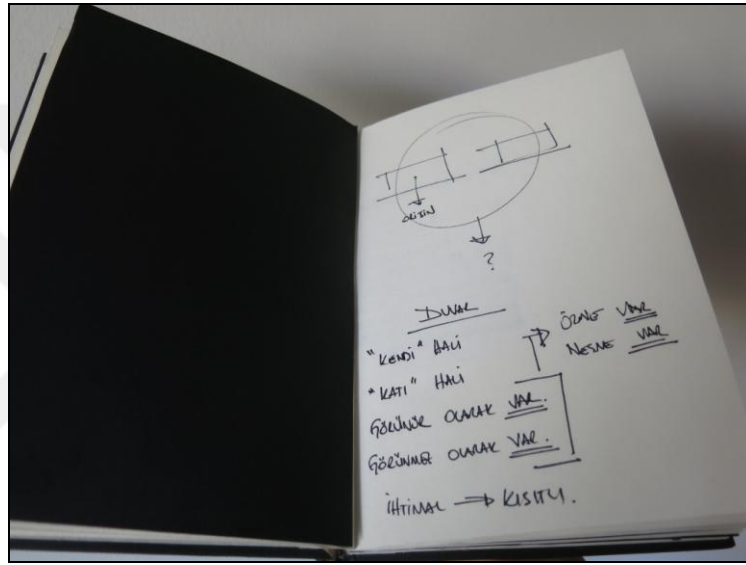 ?
DUVAR
"KENDİ" HALİ
"KATI" HALİ
GÖRÜNÜR OLARAK VAR.
GÖRÜNMEZ OLARAK VAR.
ÖZNE VAR
NESNE VAR
İHTİMAL → KISITLI.